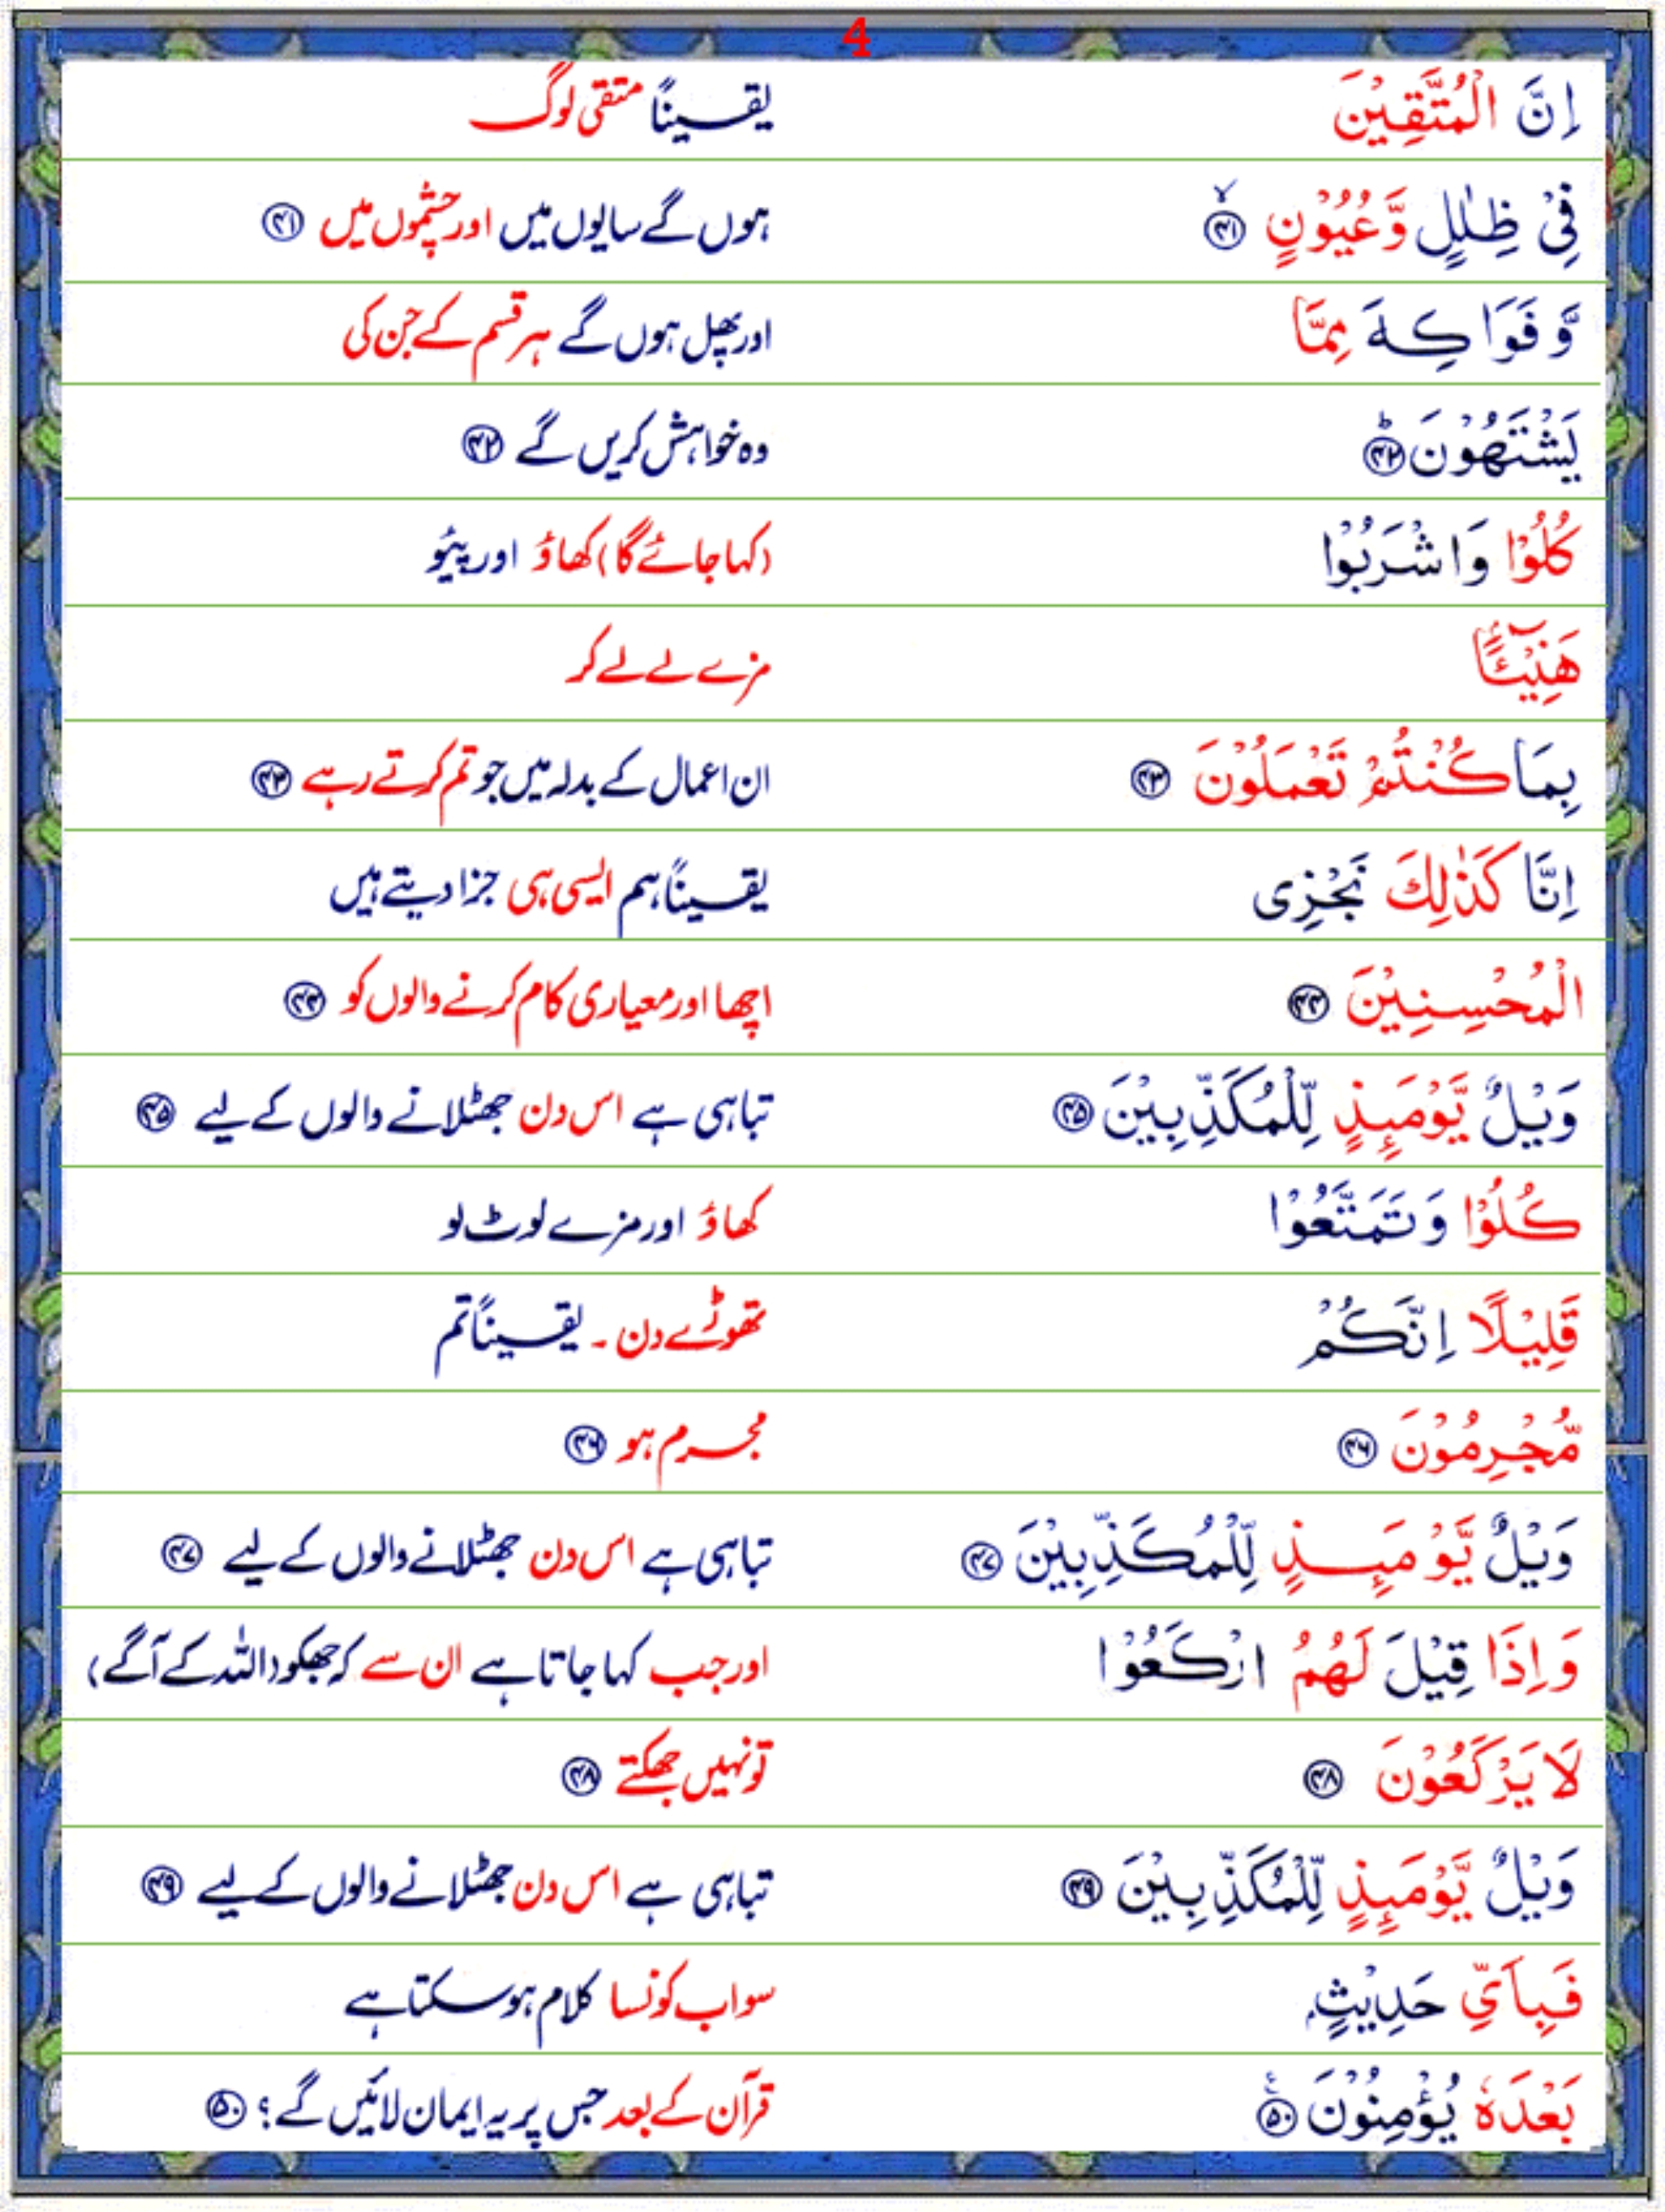 4
اِنَّ الْمُتَّقِيْنَ یقیناً متقی لوگ
فِيْ ظِلٰلٍ وَّعُيُوْنٍ ۴۱ ہوں گے سایوں میں اور چشموں میں ۴۱
وَّ فَوَاكِهَ مِمَّا اور پھل ہوں گے ہر قسم کے جن کی
يَشْتَهُوْنَ ؕ ۴۲ وہ خواہش کریں گے ۴۲
كُلُوْا وَاشْرَبُوْا (کہا جائے گا) کھاؤ اور پیئو
هَنِيْٓــًٔۢا مزے لے لے کر
بِمَا كُنْتُمْ تَعْمَلُوْنَ ۴۳ ان اعمال کے بدلہ میں جو تم کرتے رہے ۴۳
اِنَّا كَذٰلِكَ نَجْزِی یقیناً ہم ایسی ہی جزا دیتے ہیں
الْمُحْسِنِيْنَ ۴۴ اچھا اور معیاری کام کرنے والوں کو ۴۴
وَيْلٌ يَّوْمَىِٕذٍ لِّلْمُكَذِّبِيْنَ ۴۵ تباہی ہے اس دن جھٹلانے والوں کے لیے ۴۵
كُلُوْا وَتَمَتَّعُوْا کھاؤ اور مزے لوٹ لو
قَلِيْلًا اِنَّكُمْ تھوڑے دن ۔ یقیناً تم
مُّجْرِمُوْنَ ۴۶ مجرم ہو ۴۶
وَيْلٌ يَّوْمَىِٕذٍ لِّلْمُكَذِّبِيْنَ ۴۷ تباہی ہے اس دن جھٹلانے والوں کے لیے ۴۷
وَاِذَا قِيْلَ لَهُمُ ارْكَعُوْا اور جب کہا جاتا ہے ان سے کہ جھکو (اللہ کے آگے)
لَا يَرْكَعُوْنَ ۴۸ تو نہیں جھکتے ۴۸
وَيْلٌ يَّوْمَىِٕذٍ لِّلْمُكَذِّبِيْنَ ۴۹ تباہی ہے اس دن جھٹلانے والوں کے لیے ۴۹
فَبِاَيِّ حَدِيْثٍۭ سواب کونسا کلام ہو سکتا ہے
بَعْدَهٗ يُؤْمِنُوْنَ ۵۰ قرآن کے بعد جس پر یہ ایمان لائیں گے؟ ۵۰